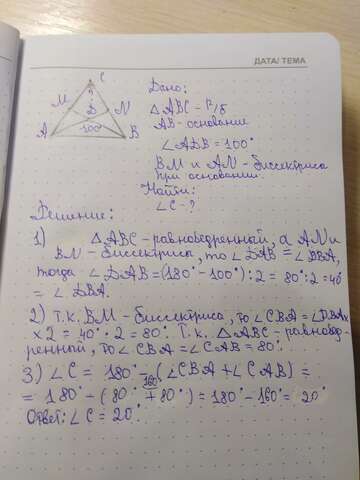 ДАТА/ ТЕМА
C
?
M
D
N
100°
A
B
Дано:
△ABC - р/б
AB - основание
∠ADB = 100°
BM и AN - биссектриса
при основании.
Найти:
∠C - ?
Решение:
1) △ABC - равнобедренный, а AN и
BN - биссектриса, то ∠DAB = ∠DBA,
тогда ∠DAB = (180° - 100°) : 2 = 80° : 2 = 40°
= ∠DBA.
2) Т.к. BM - биссектриса, то ∠CBA = ∠DBA ×
× 2 = 40° · 2 = 80°. Т.к. △ABC - равнобед-
ренный, то ∠CBA = ∠CAB = 80°.
3) ∠C = 180° - (∠CBA + ∠CAB) =
160
= 180° - (80° + 80°) = 180° - 160° = 20°
Ответ: ∠C = 20°.